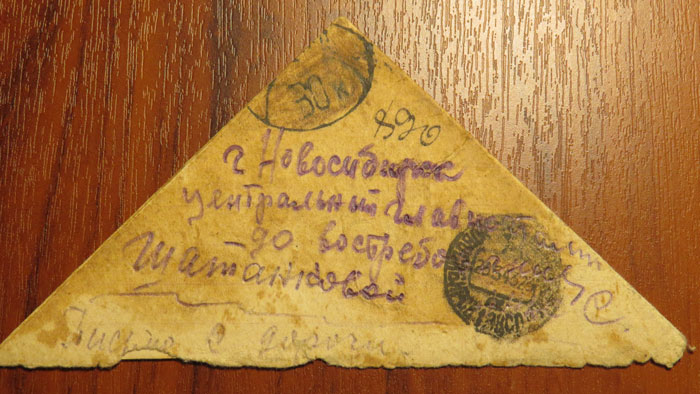 30
890
г Новосибирск
центральный главпочтамт
до востребования
Шатанковой С.
Письмо с дороги.